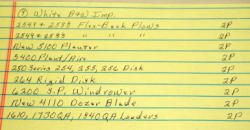 ⑦ White Ag Imp.
2549 + 2588 Flex-Back Plows 2P
2549 + 2588 " " " 2P
New 5100 Planter 2P
5400 Plant/Aire 2P
250 Series 254, 255, 256 Disk 2P
264 Rigid Disk 2P
6200 S.P. Windrower 2P
New 4110 Dozer Blade 2P
1610, 1730QA, 1840QA Loaders 2P